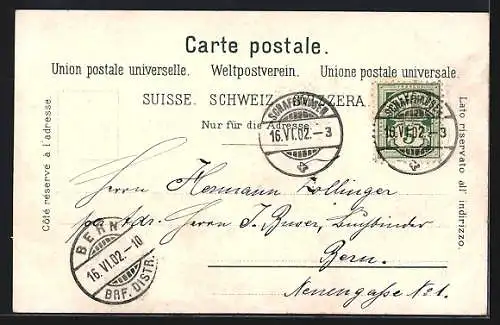 Carte postale.
Union postale universelle. Weltpostverein. Unione postale universale.
SUISSE. SCHWEIZ. SVIZZERA.
Nur für die Adresse.
Côté réservé à l'adresse.
Lato riservato all' indirizzo.
SCHAFFHAUSEN
16.VI.02.–3
SCHAFFHAUSEN
16.VI.02.–3
5
Herrn Hermann Zollinger
per Adr. Herrn J.
Bern.
Neuengasse No 1.
BERN
16.VI.02.-10
BRF. DISTR.